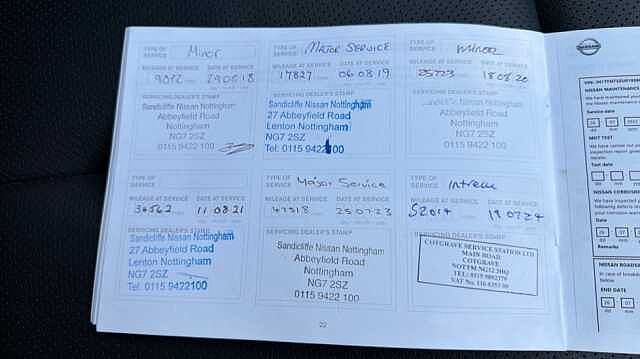 TYPE OF SERVICE Minor
MILEAGE AT SERVICE DATE AT SERVICE
Sandicliffe Nissan Nottingham
Abbeyfield Road
Nottingham
NG7 2SZ
0115 9422 100
TYPE OF SERVICE Major Service
MILEAGE AT SERVICE DATE AT SERVICE
17827 06 08 19
SERVICING DEALER'S STAMP
Sandicliffe Nissan Nottingham
27 Abbeyfield Road
Lenton Nottingham
NG7 2SZ
Tel: 0115 9422100
TYPE OF SERVICE Minor
MILEAGE AT SERVICE DATE AT SERVICE
25723 18 08 20
SERVICING DEALER'S STAMP
Nissan Nottingham
Abbeyfield Road
Nottingham
NG7 2SZ
0115 9422 100
TYPE OF SERVICE
MILEAGE AT SERVICE DATE AT SERVICE
34562 11 08 21
SERVICING DEALER'S STAMP
Sandicliffe Nissan Nottingham
27 Abbeyfield Road
Lenton Nottingham
NG7 2SZ
Tel: 0115 9422100
TYPE OF SERVICE Major Service
MILEAGE AT SERVICE DATE AT SERVICE
47518 25 07 23
SERVICING DEALER'S STAMP
Sandicliffe Nissan Nottingham
Abbeyfield Road
Nottingham
NG7 2SZ
0115 9422 100
TYPE OF SERVICE
MILEAGE AT SERVICE DATE AT SERVICE
19 07 24
SERVICING DEALER'S STAMP
COTGRAVE SERVICE STATION LTD
MAIN ROAD
COTGRAVE
NOTTM NG12 3HQ
22
NISSAN
NISSAN MAINTENANCE
Service date
dd mm
MOT TEST
Test date
dd mm
NISSAN CORROSION
dd mm
Remarks
END DATE
dd mm